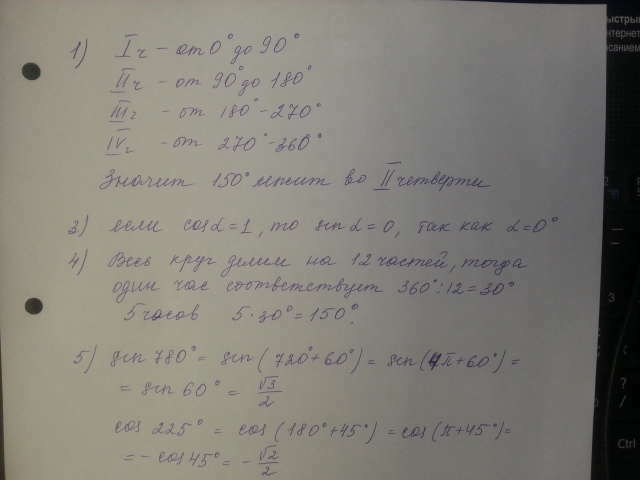 1) I ч – от 0° до 90°
II ч – от 90° до 180°
III ч – от 180° – 270°
IV ч – от 270° – 360°
Значит 150° лежит во II четверти
3) если cosα = 1, то sinα = 0, так как α = 0°
4) Весь круг делим на 12 частей, тогда
один час соответствует 360° : 12 = 30°
5 часов 5 · 30° = 150°.
5) sin 780° = sin (720° + 60°) = sin (4π + 60°) =
= sin 60° = √3/2
cos 225° = cos (180° + 45°) = cos (π + 45°) =
= – cos 45° = – √2/2
3
?
/
Ctrl